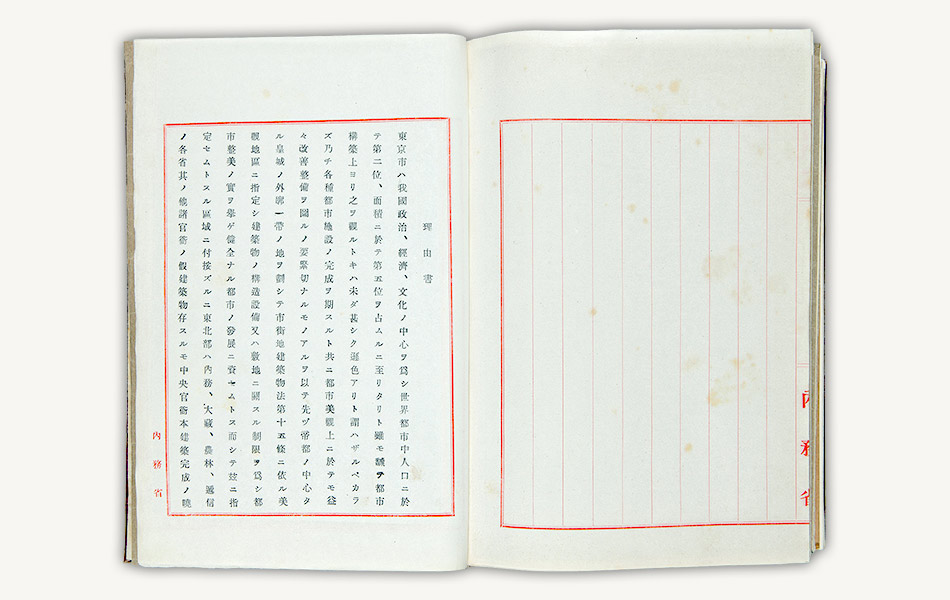 理由書
東京市ハ我國政治、經濟、文化ノ中心ヲ爲シ世界都市中人口ニ於
テ第二位、面積ニ於テ第五位ヲ占ムルニ至リタリト雖モ飜テ都市
構築上ヨリ之ヲ觀ルトキハ未ダ甚シク遜色アリト謂ハザルベカラ
ズ乃チ各種都市施設ノ完成ヲ期スルト共ニ都市美觀上ニ於テモ益
々改善整備ヲ圖ルノ要緊切ナルモノアルヲ以テ先ヅ帝都ノ中心タ
ル皇城ノ外廓一帶ノ地ヲ劃シテ市街地建築物法第十五條ニ依ル美
觀地區ニ指定シ建築物ノ構造設備又ハ敷地ニ關スル制限ヲ爲シ都
市整美ノ實ヲ擧ゲ健全ナル都市ノ發展ニ資セムトス而シテ玆ニ指
定セムトスル區域ニ付接ズルニ東北部ハ內務、大藏、農林、遞信
ノ各省其ノ他諸官衙ノ假建築物存スルモ中央官衙本建築完成ノ曉
內務省
內務省